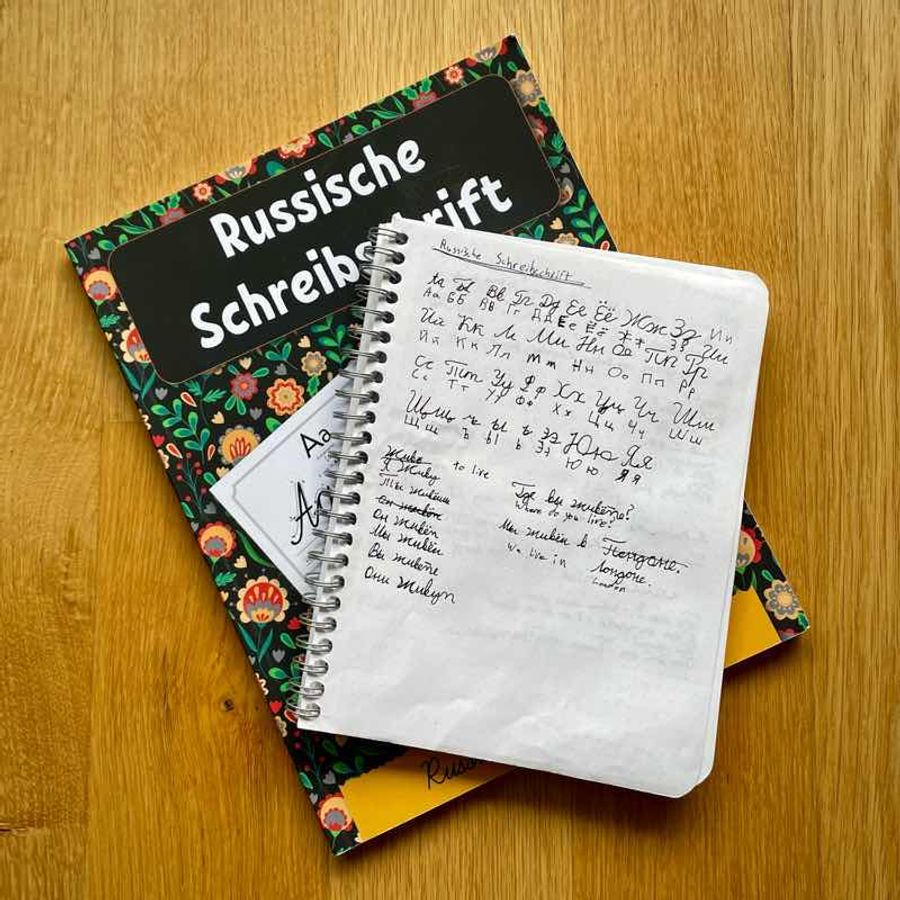 Russische
Schreibschrift
Aa
Russ
Russische Schreibschrift
Аа Бб Вв Гг Дд Ее Ёё Жж Зз Ии
Аа Бб Вв Гг Дд Ее Ёё Жж Зз Ии
Йй Кк Лл Мм Нн Оо Пп Рр
Йй Кк Лл Мм Нн Оо Пп Рр
Сс Тт Уу Фф Хх Цц Чч Шш
Сс Тт Уу Фф Хх Цц Чч Шш
Щщ ъ ы ь Ээ Юю Яя
Щщ ъ ы ь Ээ Юю Яя
to live
Я живу
Ты живёшь
Он живёт
Мы живём
Вы живёте
Они живут
Где вы живёте?
Where do you live?
Мы живём в
Лондоне.
We live in
London